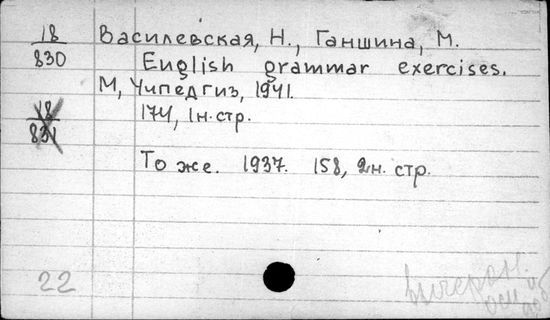 18 Василевская, Н., Ганшина, М.
830 English grammar exercises.
М, Учпедгиз, 1941.
18 174, 1н. стр.
831
То же. 1937. 158, 2н. стр.
22